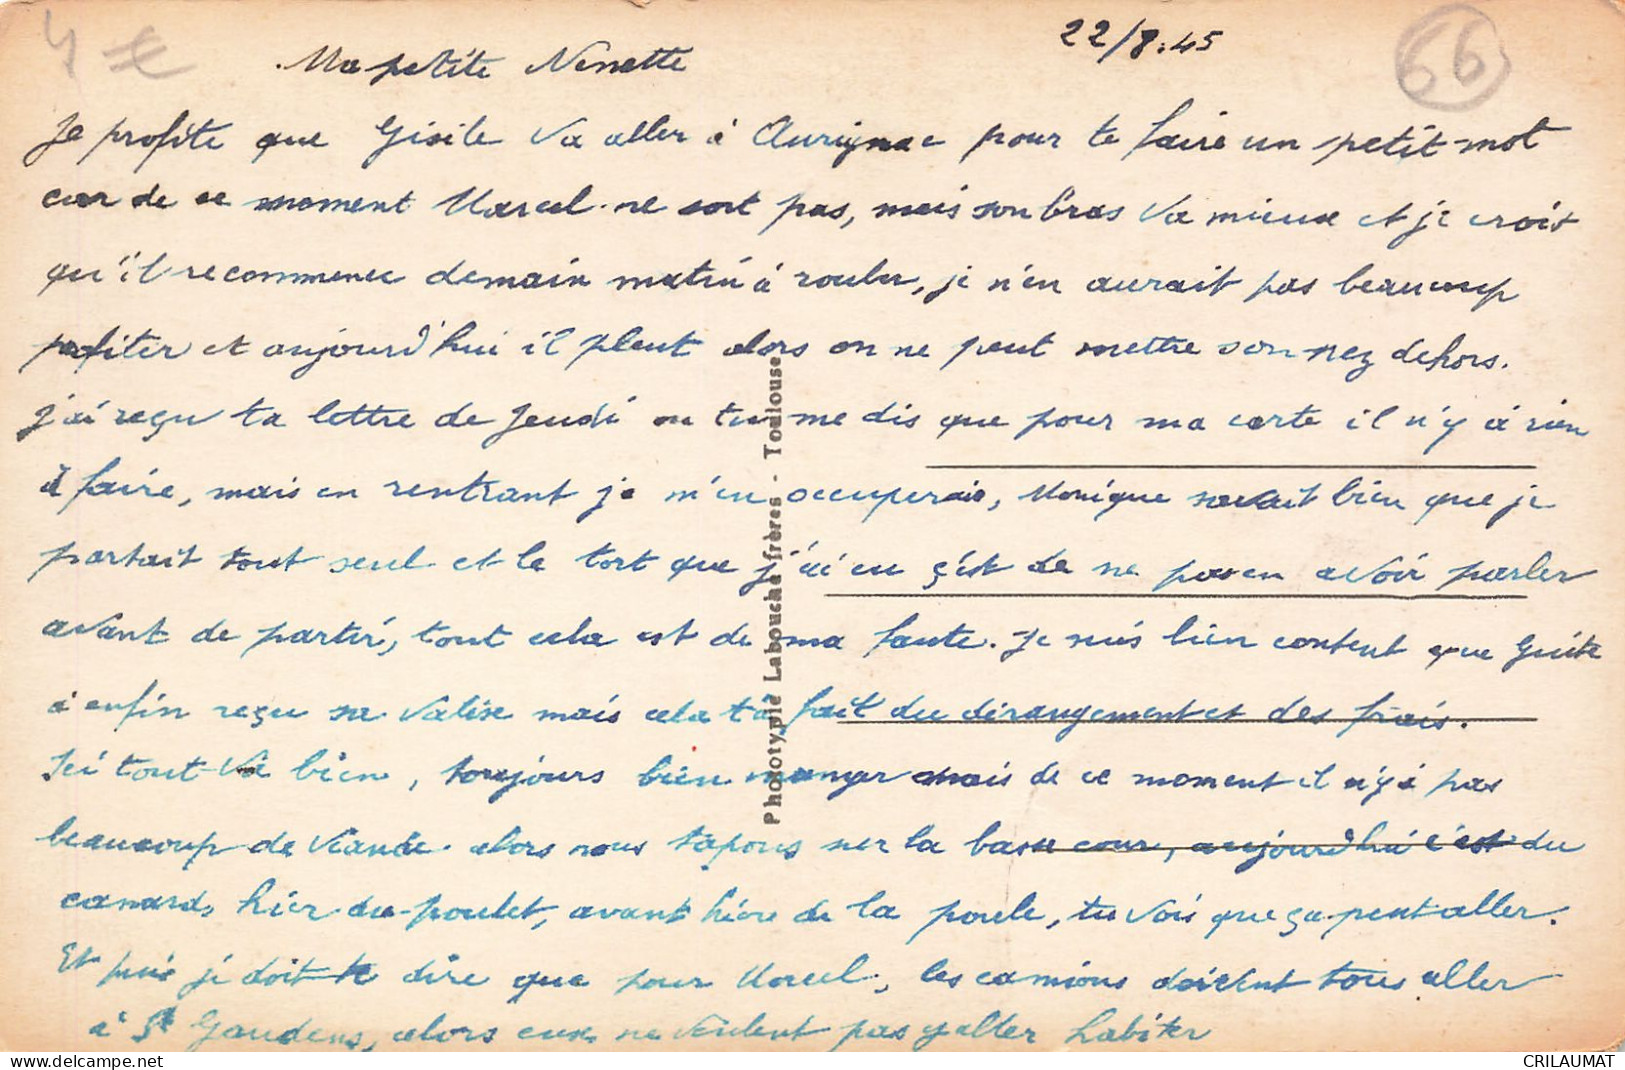 22/8.45
66
Ma petite Nenette
Je profite que Gisèle va aller à Aurignac pour te faire un petit mot
car de ce moment Marcel ne sort pas, mais son bras va mieux et je crois
qu'il recommence demain matin à rouler, je n'en aurait pas beaucoup
profiter et aujourd'hui il pleut alors on ne peut mettre son nez dehors.
j'ai reçu ta lettre de Jeudi ou tu me dis que pour ma carte il n'y à rien
à faire, mais en rentrant je m'en occuperais, Monique savait bien que je
partait tout seul et le tort que j'ai eu s'est de ne pas en avoir parler
avant de partir, tout cela est de ma faute. Je suis bien content que Guite
à enfin reçu sa valise mais cela t'à fait du dérangement et des frais.
Ici tout va bien, toujours bien manger mais de ce moment il n'y à pas
beaucoup de viande alors nous tapons sur la basse cour, aujourd'hui c'est du
canard, hier du poulet, avant hière de la poule, tu vois que ça peut aller.
Et puis je doit te dire que pour Marcel, les camions doivent tous aller
à St Gaudens, alors eux ne veulent pas y aller habiter
Phototypie Labouche frères - Toulouse
CRILAUMAT